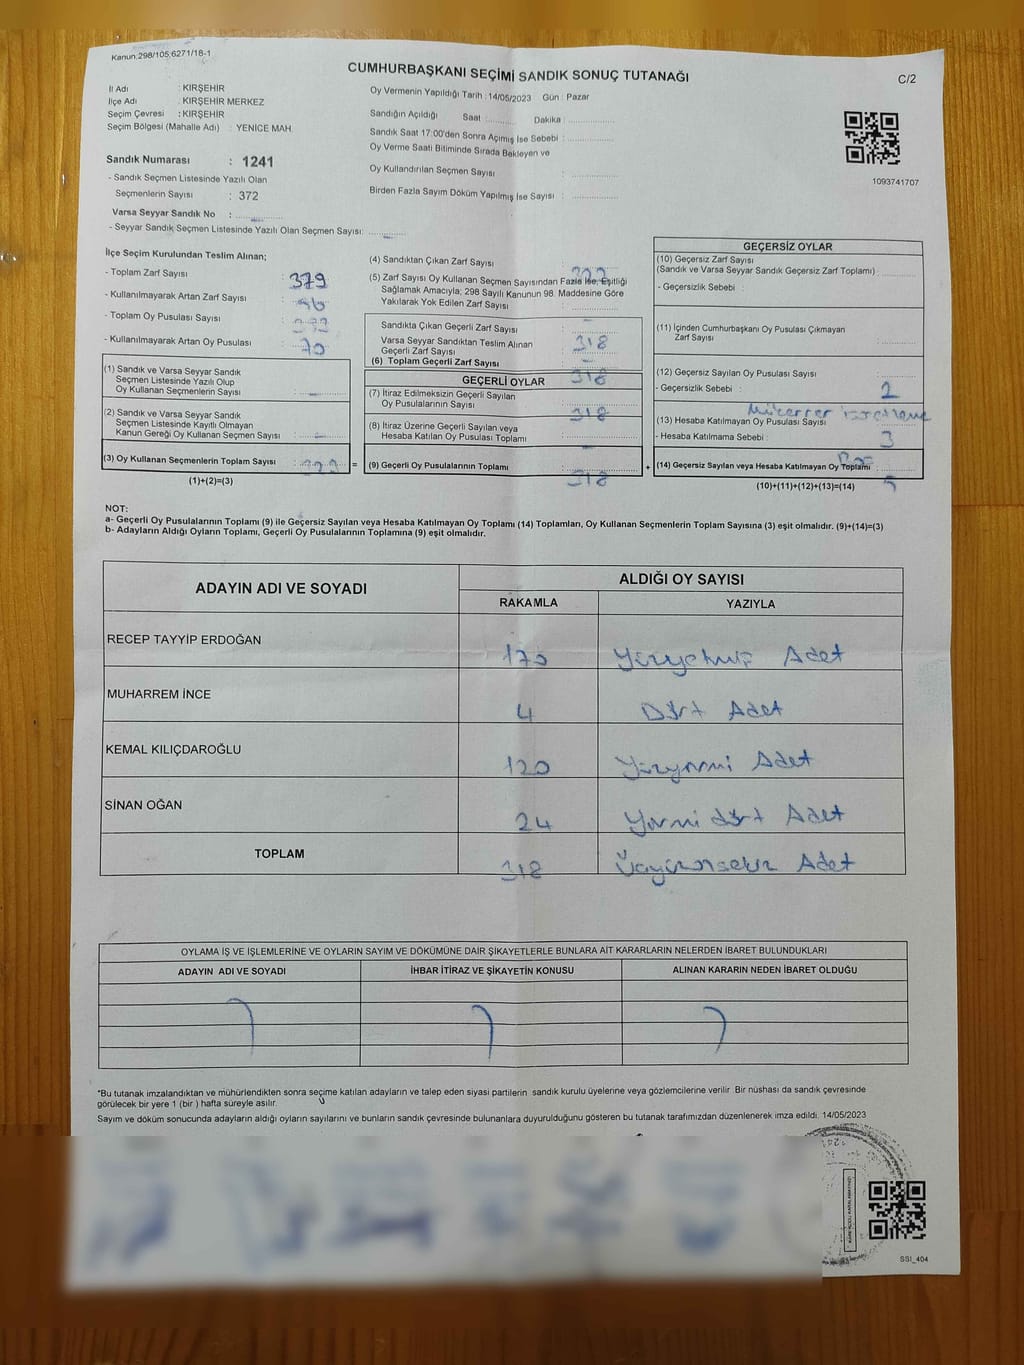 Kanun:298/105,6271/18-1
CUMHURBAŞKANI SEÇİMİ SANDIK SONUÇ TUTANAĞI
C/2
İl Adı : KIRŞEHİR
İlçe Adı : KIRŞEHİR MERKEZ
Seçim Çevresi : KIRŞEHİR
Seçim Bölgesi (Mahalle Adı) : YENİCE MAH.
Sandık Numarası : 1241
- Sandık Seçmen Listesinde Yazılı Olan
Seçmenlerin Sayısı : 372
Varsa Seyyar Sandık No :
- Seyyar Sandık Seçmen Listesinde Yazılı Olan Seçmen Sayısı:
Oy Vermenin Yapıldığı Tarih : 14/05/2023 Gün : Pazar
Sandığın Açıldığı Saat : Dakika :
Sandık Saat 17:00'den Sonra Açımış İse Sebebi :
Oy Verme Saati Bitiminde Sırada Bekleyen ve
Oy Kullandırılan Seçmen Sayısı :
Birden Fazla Sayım Döküm Yapılmış İse Sayısı :
1093741707
İlçe Seçim Kurulundan Teslim Alınan;
- Toplam Zarf Sayısı : 379
- Kullanılmayarak Artan Zarf Sayısı :
- Toplam Oy Pusulası Sayısı :
- Kullanılmayarak Artan Oy Pusulası : 70
(1) Sandık ve Varsa Seyyar Sandık
Seçmen Listesinde Yazılı Olup
Oy Kullanan Seçmenlerin Sayısı :
(2) Sandık ve Varsa Seyyar Sandık
Seçmen Listesinde Kayıtlı Olmayan
Kanun Gereği Oy Kullanan Seçmen Sayısı :
(3) Oy Kullanan Seçmenlerin Toplam Sayısı : 323 =
(1)+(2)=(3)
(4) Sandıktan Çıkan Zarf Sayısı : 323
(5) Zarf Sayısı Oy Kullanan Seçmen Sayısından Fazla İse, Eşitliği
Sağlamak Amacıyla; 298 Sayılı Kanunun 98. Maddesine Göre
Yakılarak Yok Edilen Zarf Sayısı :
Sandıkta Çıkan Geçerli Zarf Sayısı :
Varsa Seyyar Sandıktan Teslim Alınan
Geçerli Zarf Sayısı : 318
(6) Toplam Geçerli Zarf Sayısı :
GEÇERLİ OYLAR 318
(7) İtiraz Edilmeksizin Geçerli Sayılan
Oy Pusulalarının Sayısı : 318
(8) İtiraz Üzerine Geçerli Sayılan veya
Hesaba Katılan Oy Pusulası Toplamı :
(9) Geçerli Oy Pusulalarının Toplamı : 318 +
GEÇERSİZ OYLAR
(10) Geçersiz Zarf Sayısı
(Sandık ve Varsa Seyyar Sandık Geçersiz Zarf Toplamı) :
- Geçersizlik Sebebi :
(11) İçinden Cumhurbaşkanı Oy Pusulası Çıkmayan
Zarf Sayısı :
(12) Geçersiz Sayılan Oy Pusulası Sayısı :
- Geçersizlik Sebebi : 2
Mükerrer işaretleme
(13) Hesaba Katılmayan Oy Pusulası Sayısı :
- Hesaba Katılmama Sebebi : 3
Boş
(14) Geçersiz Sayılan veya Hesaba Katılmayan Oy Toplamı : 5
(10)+(11)+(12)+(13)=(14)
NOT:
a- Geçerli Oy Pusulalarının Toplamı (9) ile Geçersiz Sayılan veya Hesaba Katılmayan Oy Toplamı (14) Toplamları, Oy Kullanan Seçmenlerin Toplam Sayısına (3) eşit olmalıdır. (9)+(14)=(3)
b- Adayların Aldığı Oyların Toplamı, Geçerli Oy Pusulalarının Toplamına (9) eşit olmalıdır.
ADAYIN ADI VE SOYADI
ALDIĞI OY SAYISI
RAKAMLA YAZIYLA
RECEP TAYYİP ERDOĞAN 170 Yüzyetmiş Adet
MUHARREM İNCE 4 Dört Adet
KEMAL KILIÇDAROĞLU 120 Yüzyirmi Adet
SİNAN OĞAN 24 Yirmi dört Adet
TOPLAM 318 Üçyüzonsekiz Adet
OYLAMA İŞ VE İŞLEMLERİNE VE OYLARIN SAYIM VE DÖKÜMÜNE DAİR ŞİKAYETLERLE BUNLARA AİT KARARLARIN NELERDEN İBARET BULUNDUKLARI
ADAYIN ADI VE SOYADI İHBAR İTİRAZ VE ŞİKAYETİN KONUSU ALINAN KARARIN NEDEN İBARET OLDUĞU
*Bu tutanak imzalandıktan ve mühürlendikten sonra seçime katılan adayların ve talep eden siyasi partilerin sandık kurulu üyelerine veya gözlemcilerine verilir. Bir nüshası da sandık çevresinde
görülecek bir yere 1 (bir ) hafta süreyle asılır.
Sayım ve döküm sonucunda adayların aldığı oyların sayılarını ve bunların sandık çevresinde bulunanlara duyurulduğunu gösteren bu tutanak tarafımızdan düzenlenerek imza edildi. 14/05/2023
1241
SSI_404